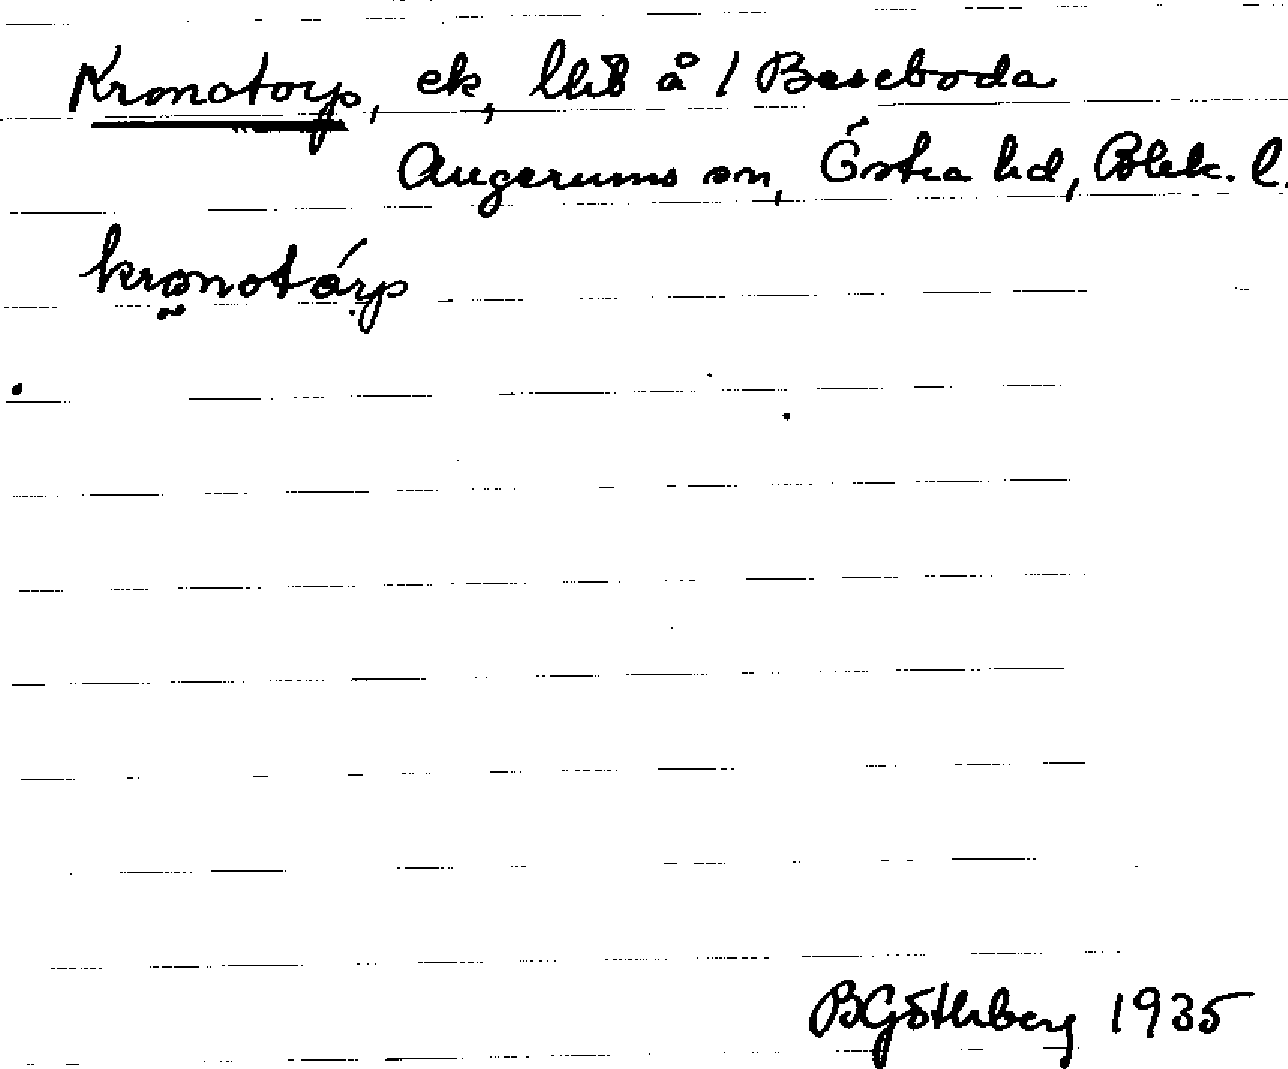 Kronotorp, ek, å 1 Beseboda
Augerums sn, Östra hd, Blek. l.
kronotórp
BGöthberg 1935